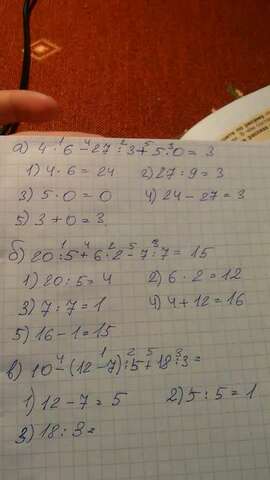 а) 4 · 6 - 27 : 3 + 5 · 0 = 3
1) 4 · 6 = 24 2) 27 : 9 = 3
3) 5 · 0 = 0 4) 24 - 27 = 3
5) 3 + 0 = 3
б) 20 : 5 + 6 · 2 - 7 : 7 = 15
1) 20 : 5 = 4 2) 6 · 2 = 12
3) 7 : 7 = 1 4) 4 + 12 = 16
5) 16 - 1 = 15
в) 10 - (12 - 7) : 5 + 18 : 3 =
1) 12 - 7 = 5 2) 5 : 5 = 1
3) 18 : 3 =